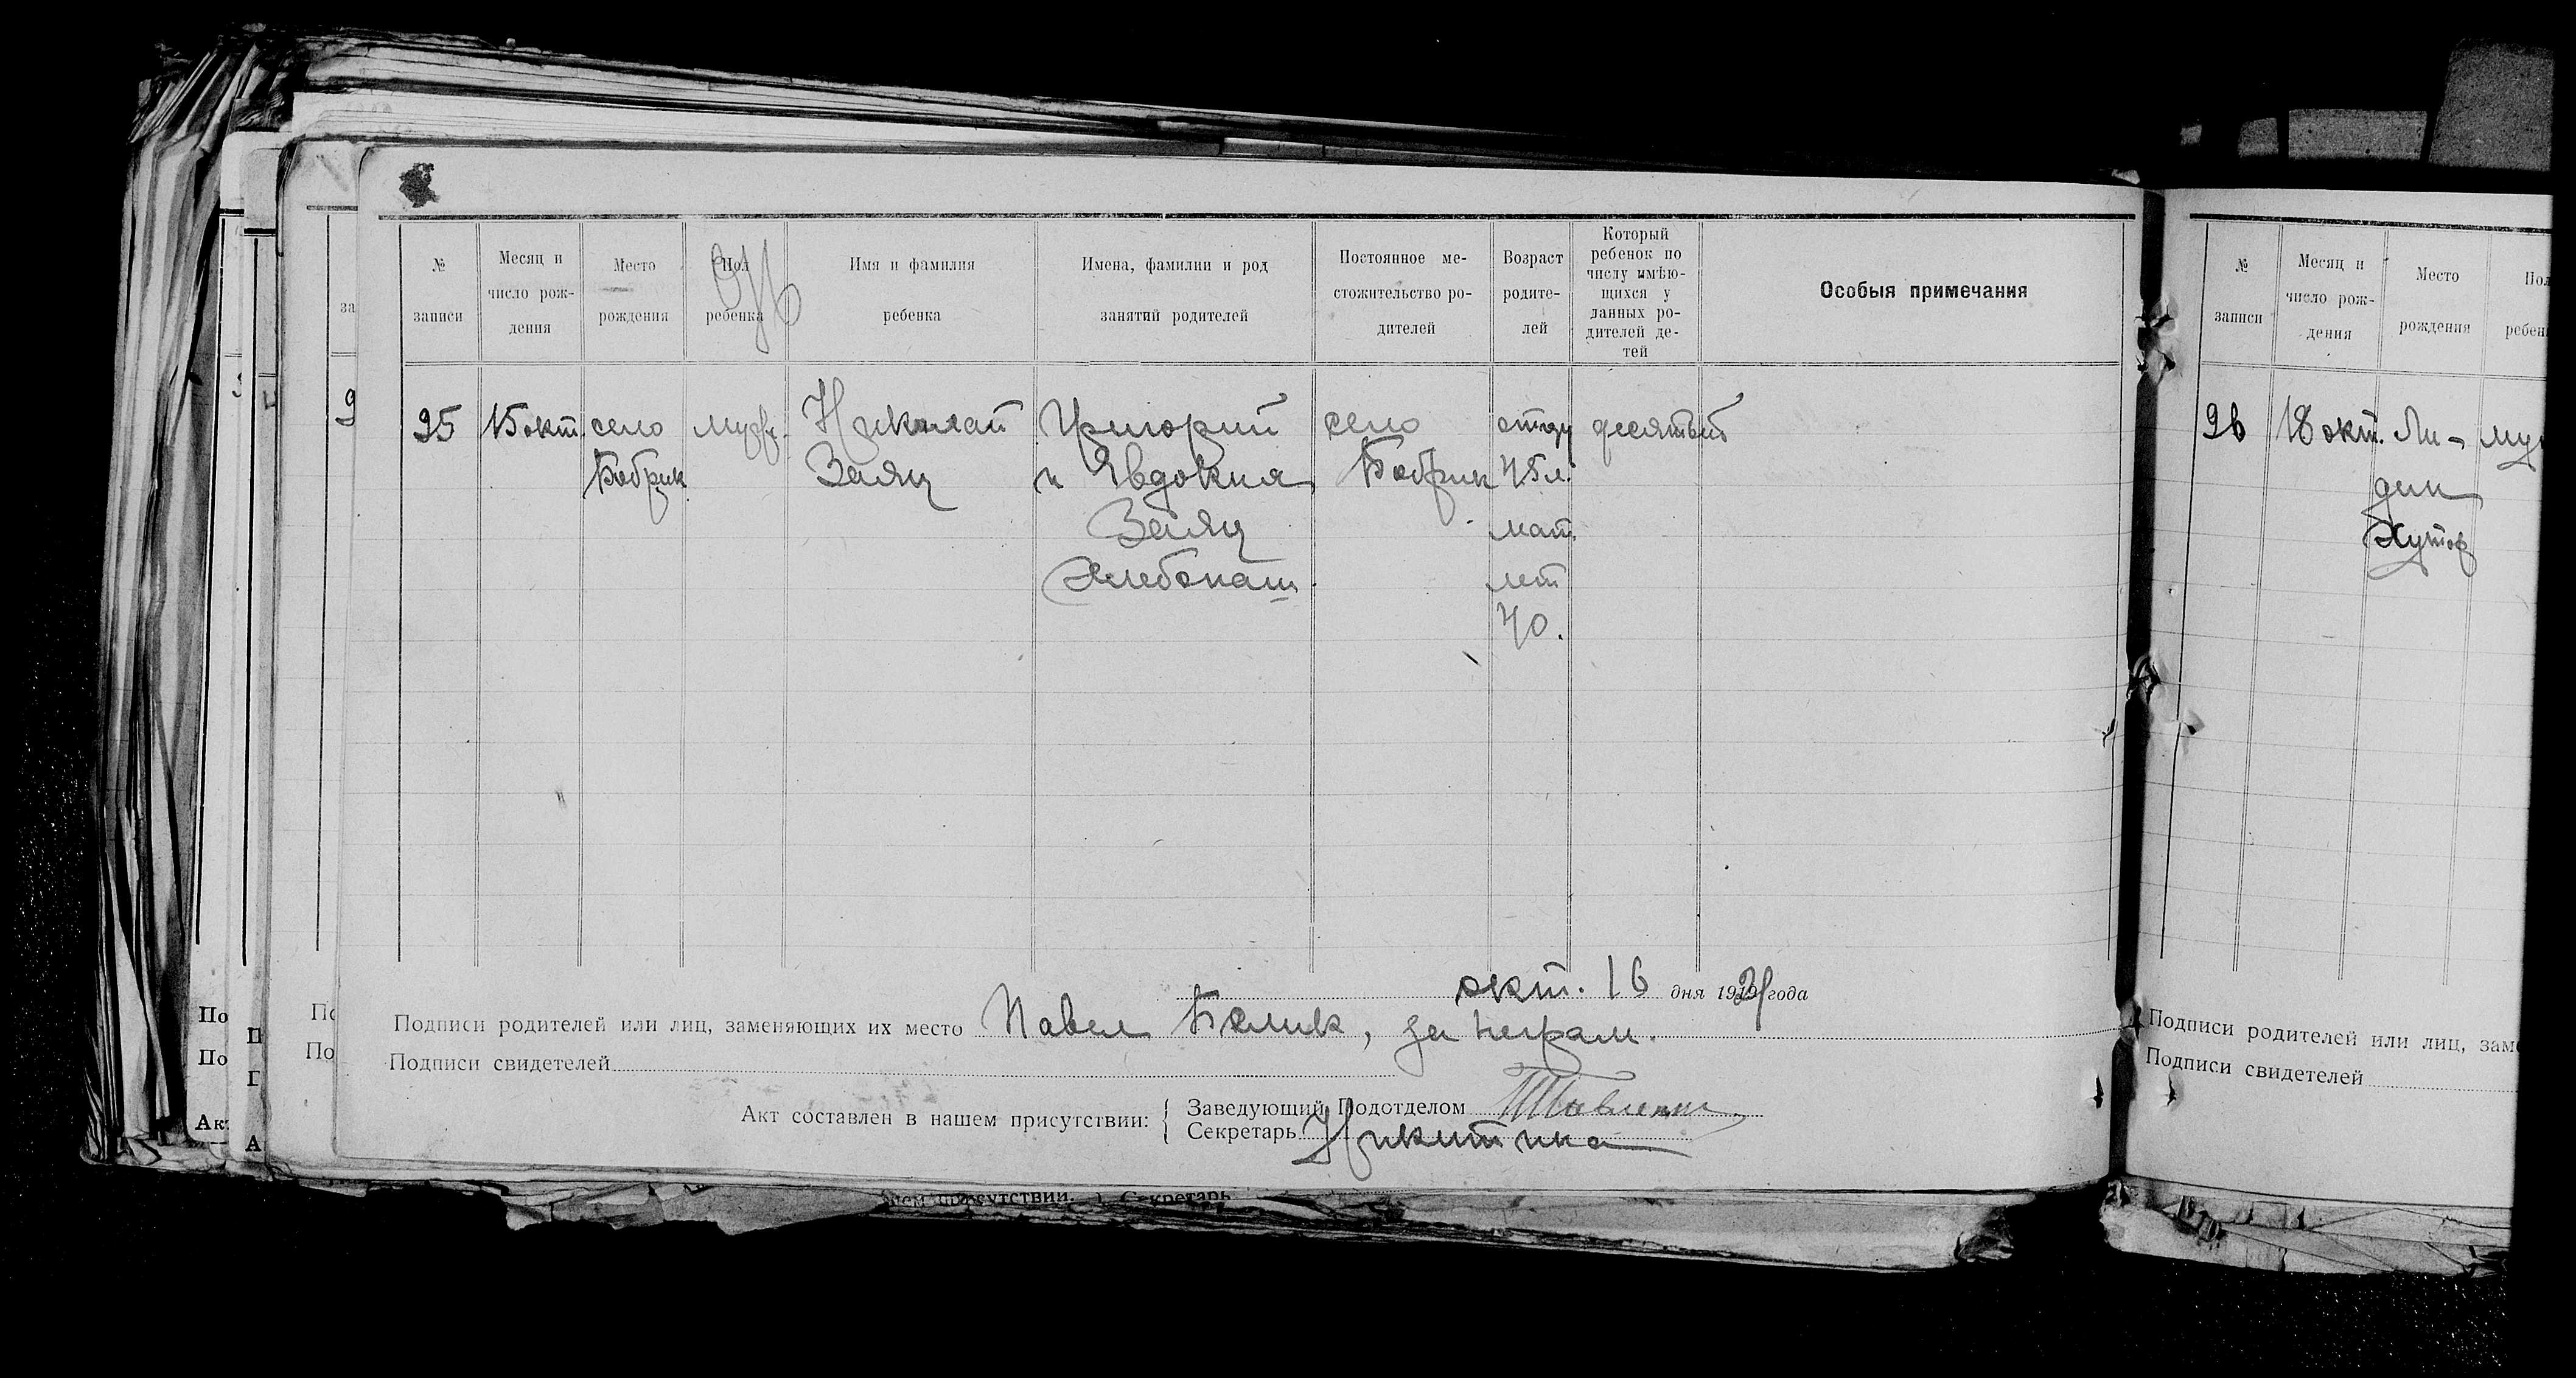 № записи
Месяц и число рождения
Место рождения
Пол ребенка
Имя и фамилия ребенка
Имена, фамилии и род занятий родителей
Постоянное местожительство родителей
Возраст родителей
Который ребенок по числу имѣющихся у данных родителей детей
Особыя примечания
95
15 окт.
село
Бобрик
мужч.
Николай
Заяц
Григорий
и Явдокия
Заяц
Хлебопаш.
село
Бобрик
отцу
45 л.
мат.
лет
40.
десятый
окт. 16 дня 19 года
Подписи родителей или лиц, заменяющих их место Павел Белик, за неграм.
Подписи свидетелей
Акт составлен в нашем присутствии:
Заведующий Подотделом
Секретарь Никитина
№ записи
Месяц и число рождения
Место рождения
Пол
ребен
96
18 окт.
Ли-
дин
Хутор
му
Подписи родителей или лиц, зам
Подписи свидетелей
нем присутствии. Секретарь